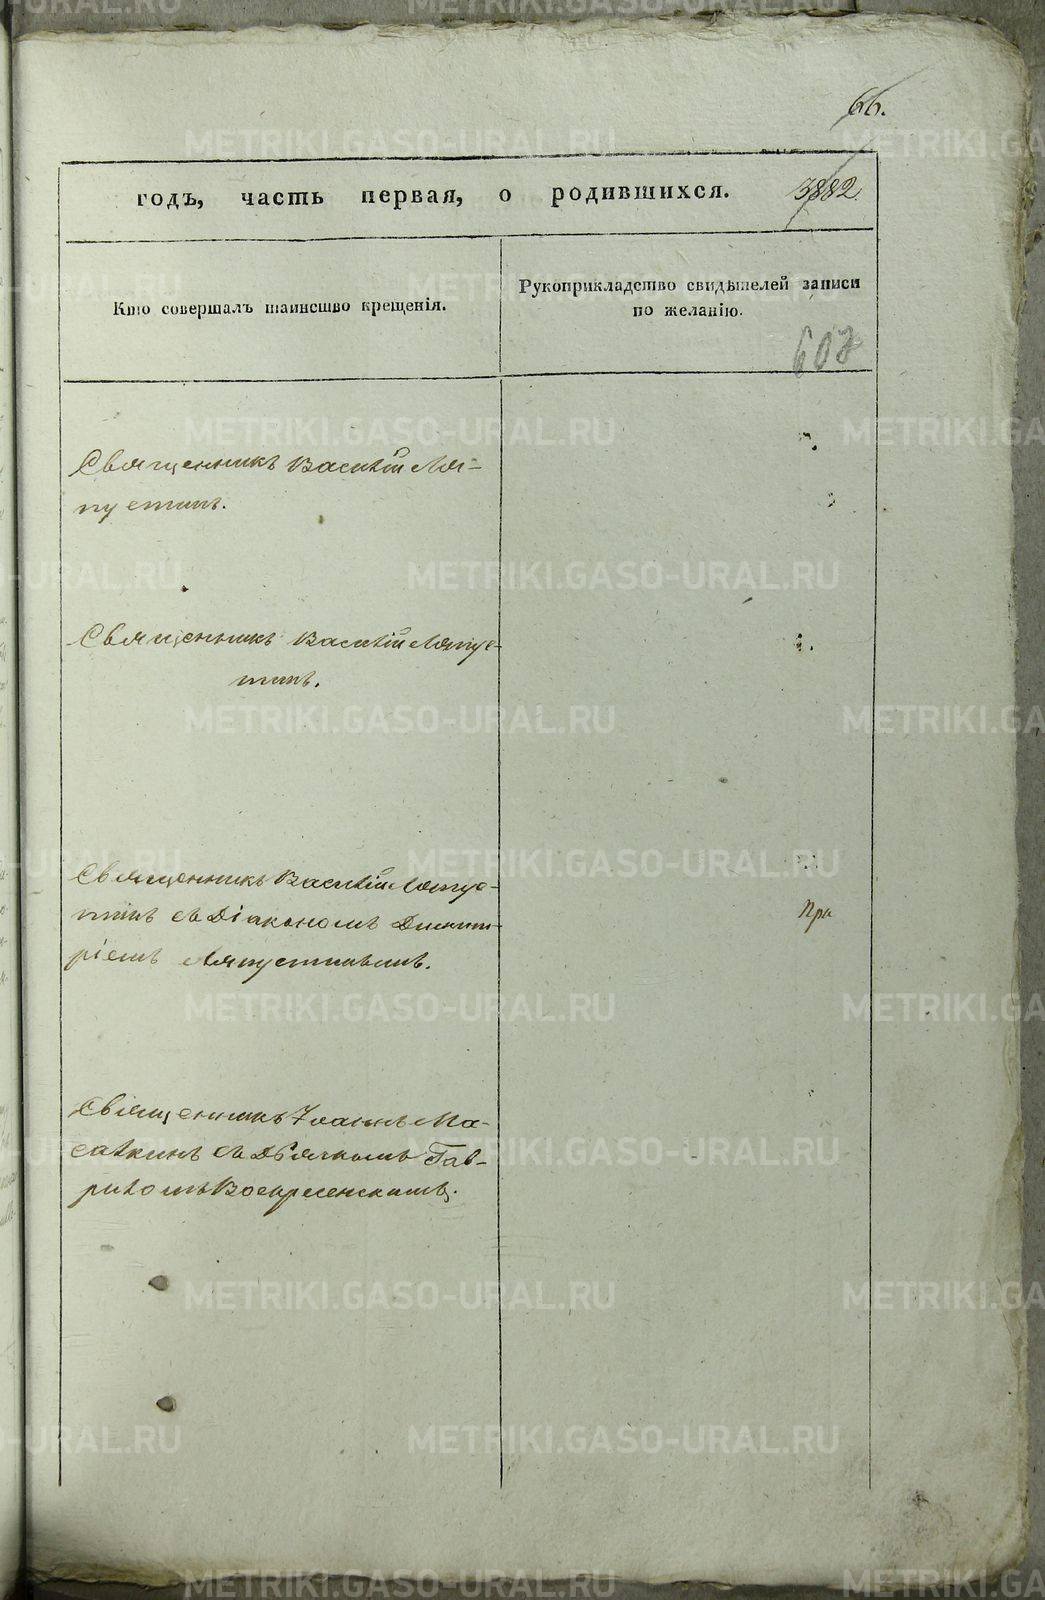 66.
годъ, часть первая, о родившихся. 3882.
Кто совершалъ таинство крещенія.
Рукоприкладство свидѣтелей записи
по желанію.
607
Священникъ Василій Ля-
пустинъ.
Священникъ Василій Ляпус-
тинъ.
Священникъ Василій Ляпус-
тинъ съ Діакономъ Димит-
ріемъ Ляпустинымъ.
При
Священникъ Іоаннъ Ма-
съ Дьячкомъ Гав-
риломъ Воскресенскимъ.
METRIKI.GASO-URAL.RU